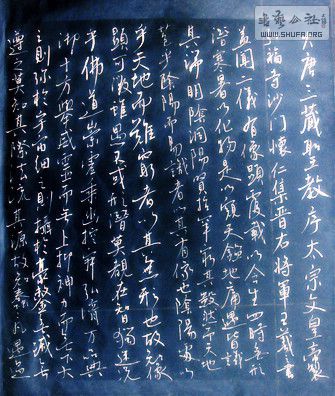 大唐三藏聖教序太宗文皇帝製
弘福寺沙門懷仁集晉右將軍王羲之書
蓋聞二儀有像顯覆載以含生四時無形
潛寒暑以化物是以窺天鑑地庸愚皆識
其端明陰洞陽賢哲罕窮其數然天地
苞乎陰陽而易識者以其有像也陰陽處
乎天地而難窮者以其無形也故像
顯可徵雖愚不惑形潛莫覩在智猶迷況
乎佛道崇虛乘幽控寂弘濟萬品典
御十方舉威靈而無上抑神力而無下大
之則彌於宇宙細之則攝於毫釐無滅無
遵之莫知其際法流其源故
書藝公社
WWW.SHUFA.ORG.